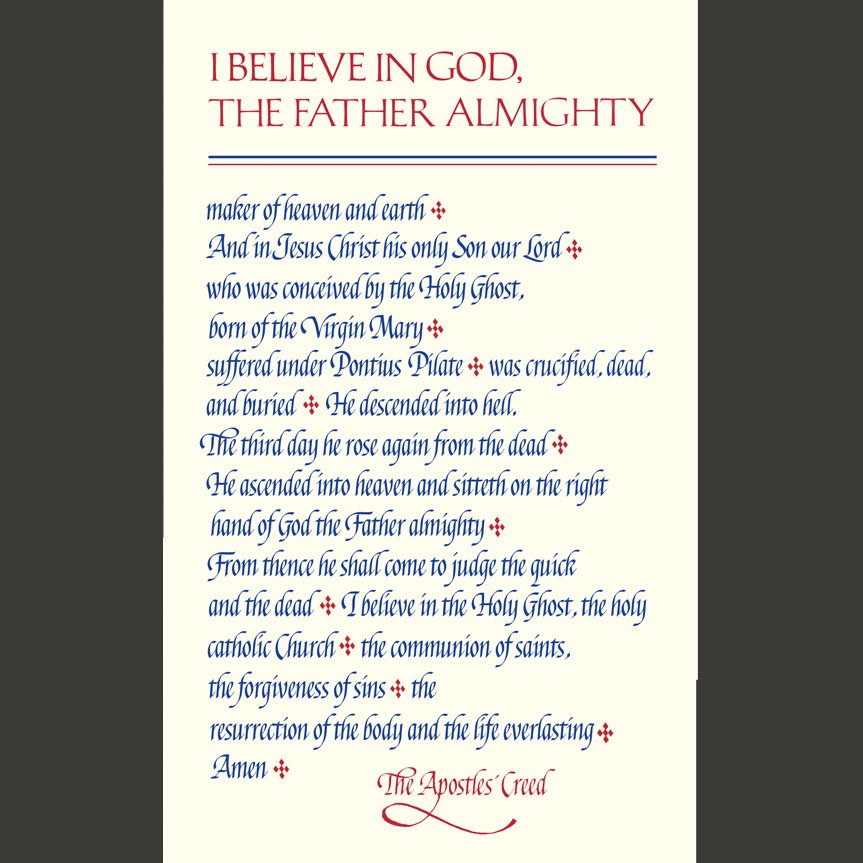 I BELIEVE IN GOD,
THE FATHER ALMIGHTY
maker of heaven and earth
And in Jesus Christ his only Son our Lord
who was conceived by the Holy Ghost,
born of the Virgin Mary
suffered under Pontius Pilate was crucified, dead,
and buried He descended into hell.
The third day he rose again from the dead
He ascended into heaven and sitteth on the right
hand of God the Father almighty
From thence he shall come to judge the quick
and the dead I believe in the Holy Ghost, the holy
catholic Church the communion of saints,
the forgiveness of sins the
resurrection of the body and the life everlasting
Amen
The Apostles' Creed